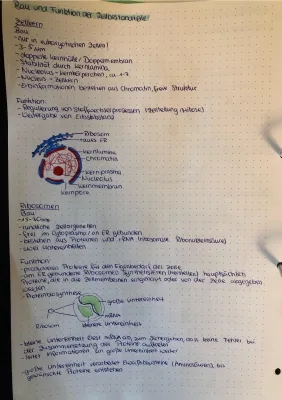 Bau und Funktion der Zellbestandteile!
Zellkern
Bau
- nur in eukaryotischen Zellen!
- 3-5 µm
- doppelte Kernhülle/Doppelmembran
- Stabilität durch Kernlamina
- Nucleolus - Kernkörperchen, ca. 1-7
- Nucleus = Zellkern
- Erbinformationen bestehen aus Chromatin, Struktur
Funktion:
- Regulierung von Stoffwechselprozessen
- Weitergabe von Erbsubstanz
Ribosom
raues ER
Kernlamina
Chromatin
Kernplasma
Nucleolus
Kernmembran
Kernpore
Ribosomen
Bau
- rundliche Zellorganellen
- frei im Cytoplasma / an ER gebunden
- bestehen aus Proteinen und rRNA (ribosomale Ribonukleinsäure)
- zwei Untereinheiten
Funktion
- produzieren Proteine für den Eigenbedarf der Zelle
- am ER gebundene Ribosomen: Synthetisieren (herstellen) hauptsächlich
Proteine, die in die Zellmembranen eingebaut oder von der Zelle abgegeben
werden
- Proteinbiosynthese
große Untereinheit
mRNA
kleine Untereinheit
Ribosom
- kleine Untereinheit liest mRNA ab, zum Sichergehen, dass keine Fehler bei
der Zusammensetzung der Proteine auftreten
- leitet Informationen an große Untereinheit weiter
- große Untereinheit verarbeitet Eiweißbausteine (Aminosäuren), bis
gewünschte Proteine entstehen